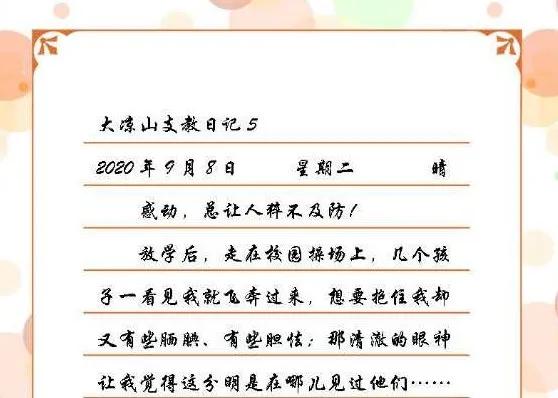 大凉山支教日记5
2020年9月8日 星期二 晴
感动，总让人猝不及防！
放学后，走在校园操场上，几个孩
子一看见我就飞奔过来，想要抱住我却
又有些腼腆、有些胆怯；那清澈的眼神
让我觉得这分明是在哪儿见过他们……